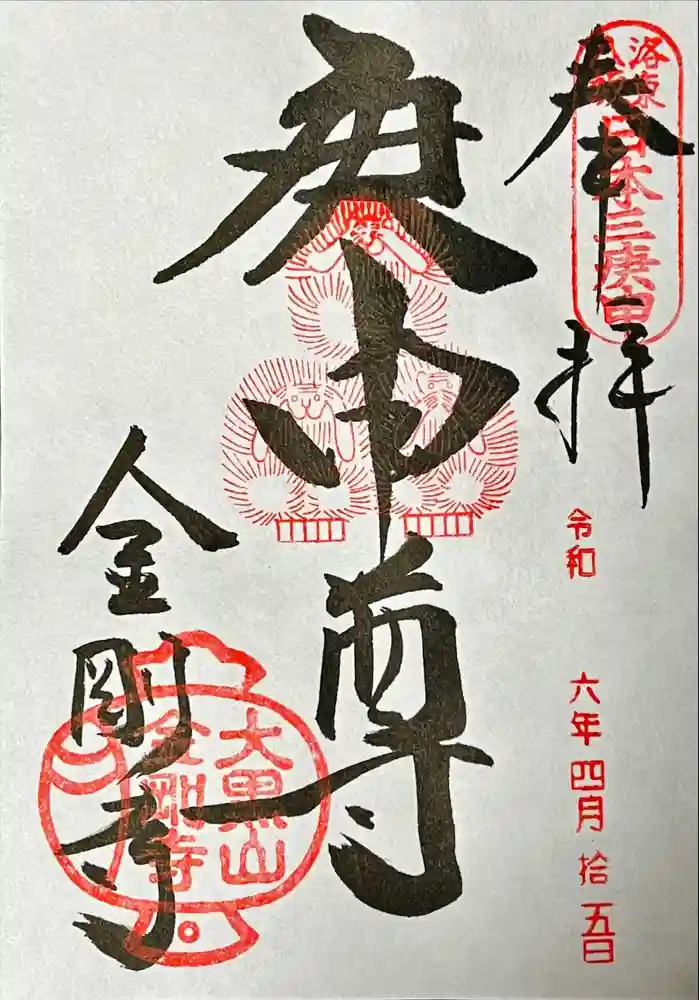 奉拝
洛東
八坂
日本三庚申
令和
六年四月拾五日
庚申尊
金剛寺
大黒山
金剛寺